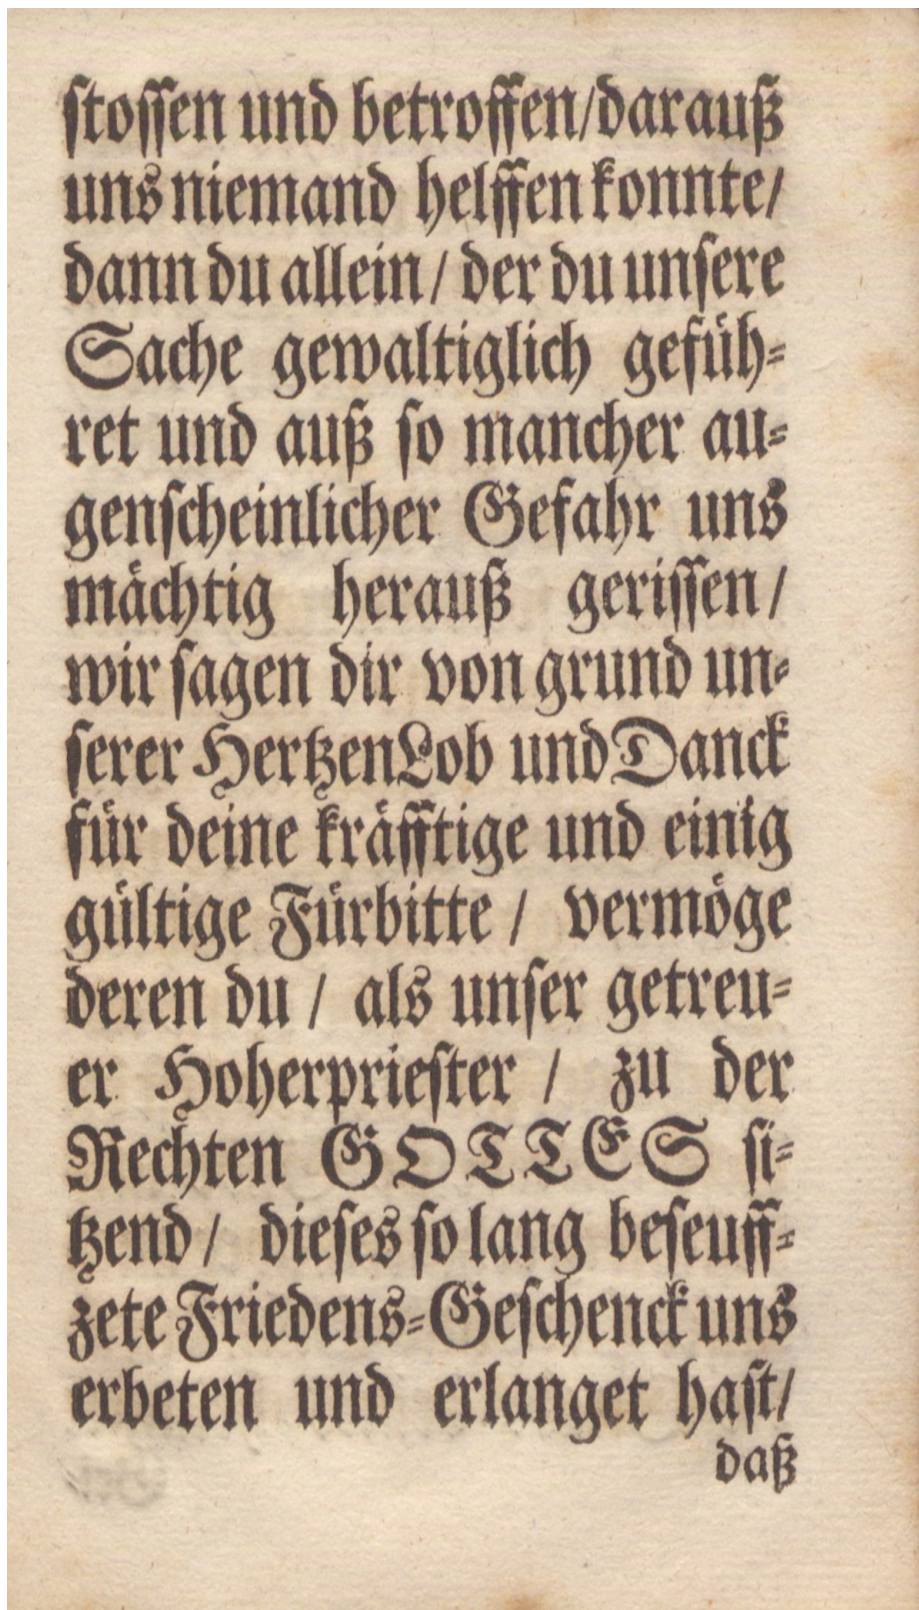 ſtoſſen und betroffen/darauß
uns niemand helffen konnte/
dann du allein/ der du unſere
Sache gewaltiglich gefüh⸗
ret und auß ſo mancher au⸗
genſcheinlicher Gefahr uns
mächtig herauß geriſſen/
wir ſagen dir von grund un⸗
ſerer Hertzen Lob und Danck
für deine kräfftige und einig
gültige Fürbitte / vermöge
deren du / als unſer getreu⸗
er Hoherprieſter / zu der
Rechten GOTTES ſi⸗
tzend/ dieſes ſo lang beſeuff⸗
zete Friedens⸗Geſchenck uns
erbeten und erlanget haſt/
daß